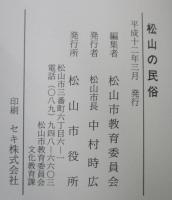 松山の民俗
平成十二年三月 発行
編集者 松山市教育委員会
発行者 松山市長 中村時広
発行所 松山市役所
松山市三番町六丁目六―一
電話(〇八九)九四八―六六〇三
松山市教育委員会
文化教育課
印刷 セキ株式会社